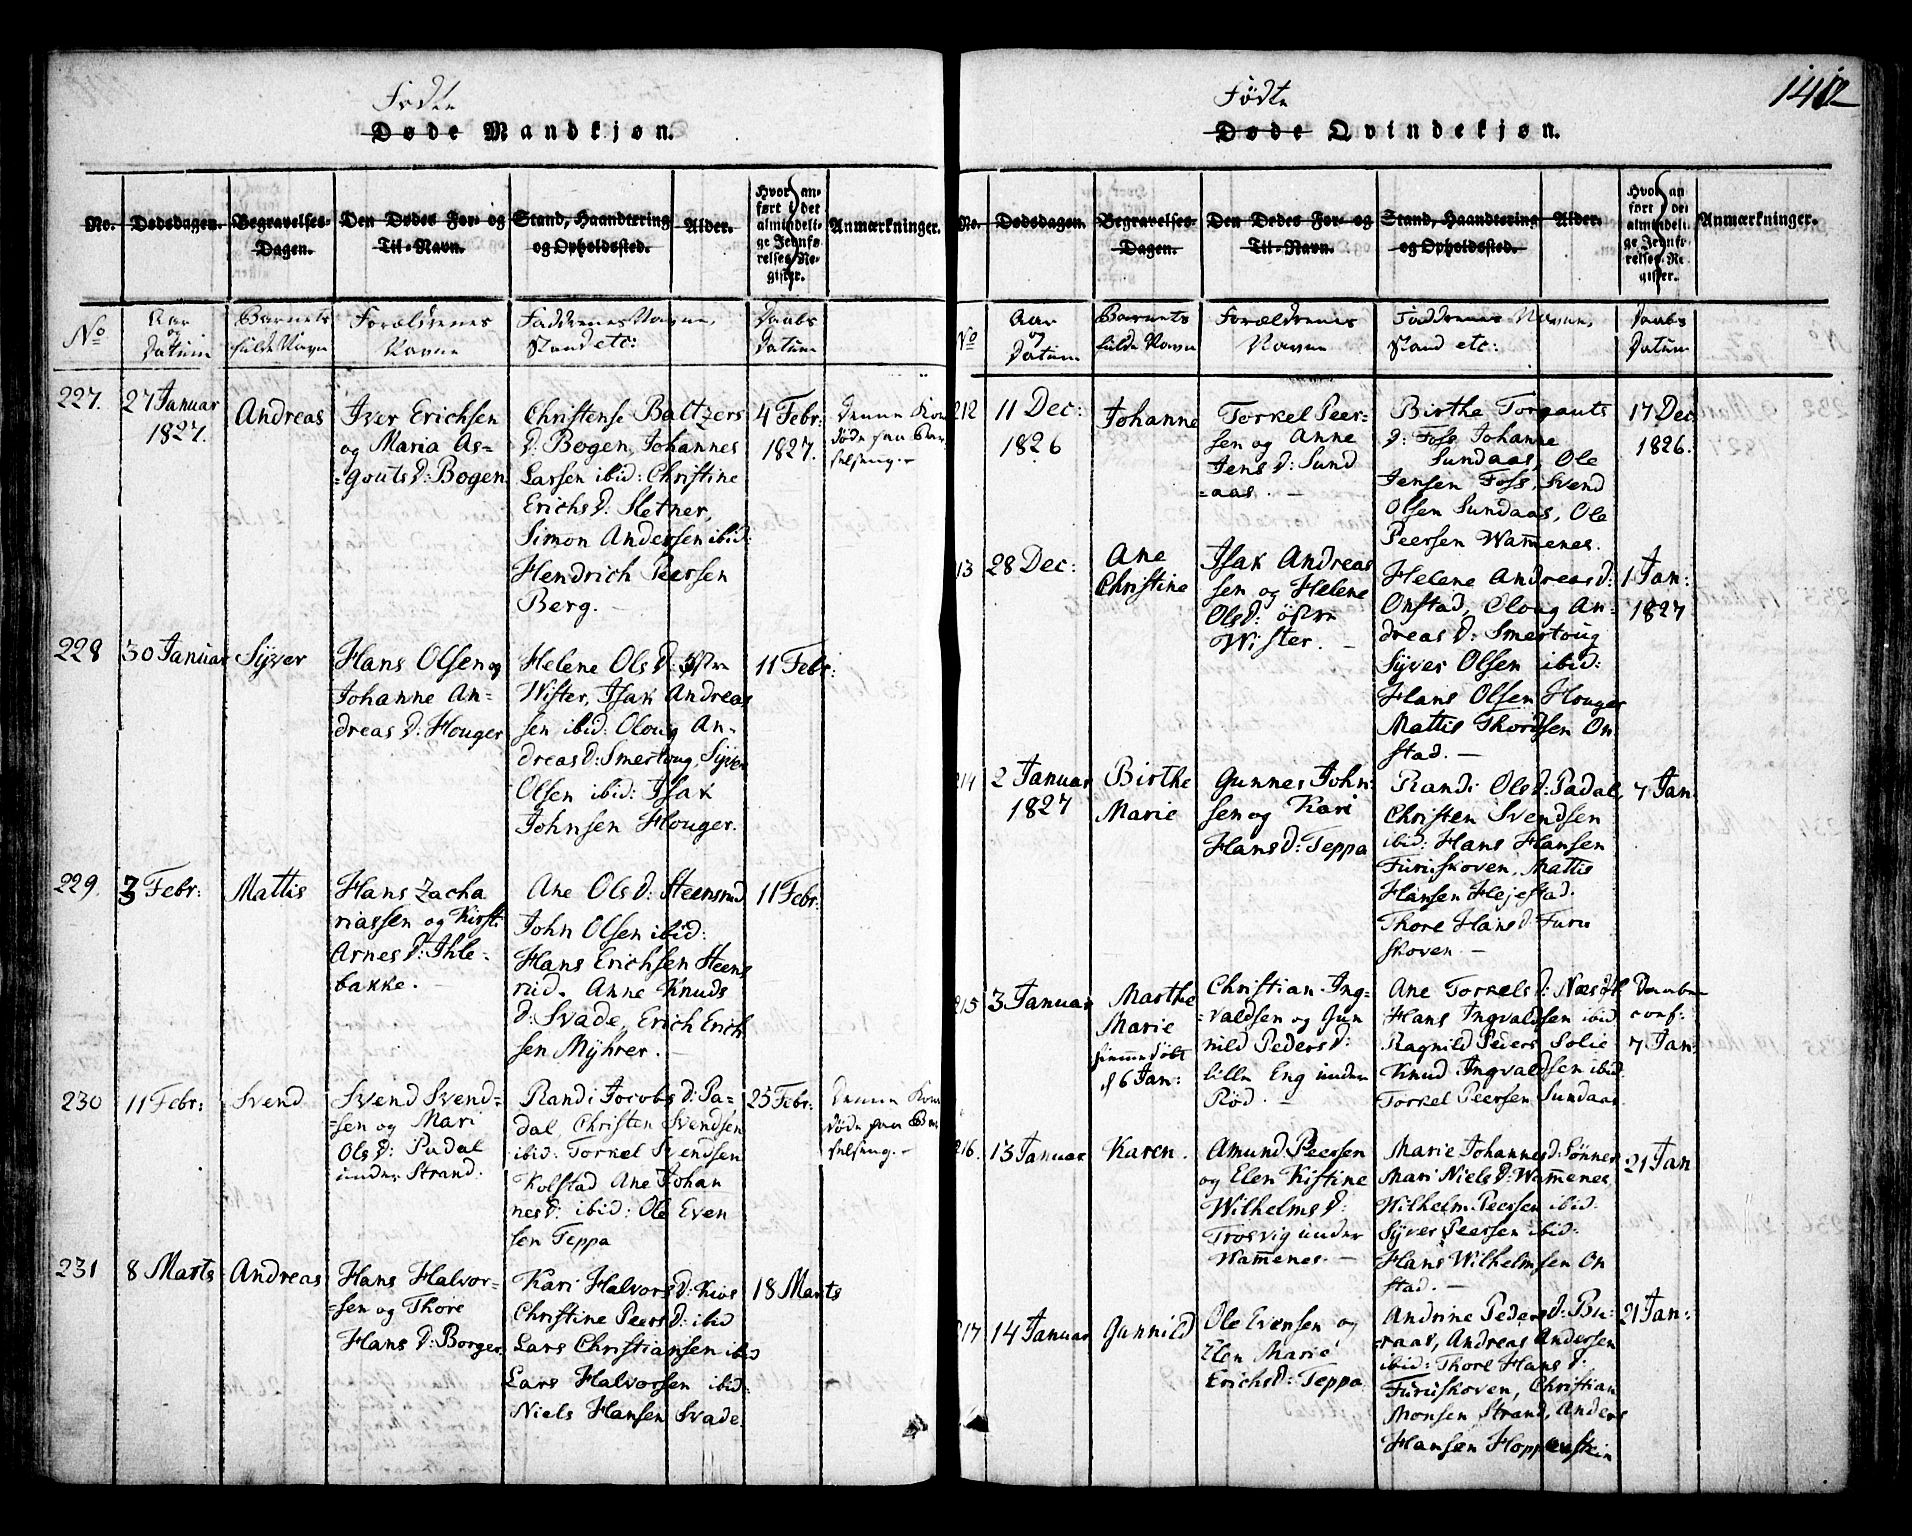 Fødte
Døde Mandkjøn.
No. Dødsdagen. Begravelses-Dagen. Den Dødes For- og Til-Navn. Stand, Haandtering og Opholdssted. Alder. Hvor anført i det almindelige Jevnførelses-Register. Anmærkninger.
No Aar og Datum Barnets fulde Navn Forældrenes Navne Faddernes Navne, Stand etc: Daabs Datum
227. 27 Januar 1827. Andreas
Iver Erichsen
og Maria As-
=gouts D: Bogen
Christense Baltzers
D: Bogen, Johannes
Larsen ibid: Christine
Erichs D: Sletner,
Simon Andersen ibid:
Hendrich Peersen
Berg.
4 Febr: 1827.
Denne Kone
døde paa Bar
selseng.
228 30 Januar Syver
Hans Olsen og
Johanne An-
dreas D: Houger
Helene Ols D: østre
Wister, Isak Andreas
sen ibid: Oloug An-
dreas D: Smertoug, Syver
Olsen ibid: Isak
Johnsen Houger.
11 Febr:
229. 3 Febr: Mattis
Hans Zacha
riassen og Kirsti
Arnes D: Ihle-
bakke.
Ane Ols D: Steensrud
John Olsen ibid:
Hans Erichsen Steens
rud. Anne Knuds
D: Svade, Erich Erich
sen Myhrer.
11 Febr:
230 11 Febr: Svend
Svend Svend-
=sen og Mari
Ols D: Padal
under Strand.
Randi Jacobs D: Pa-
dal, Christen Svendsen
ibid: Torkel Svendsen
Kolstad Ane Johan
nes D: ibid: Ole Even
sen Teppa
25 Febr:
Denne Kone
døde paa Bar
selseng.
231 8 Marts Andreas
Hans Halvor-
=sen og Thore
Hans D: Borger
Kari Halvors D: Kios
Christine Peers D: ibid
Lars Christiansen ibid
Lars Halvorsen ibid:
Niels Hansen Svade.
18 Marts
Fødte
Døde Qvindekjøn.
No. Dødsdagen. Begravelses-Dagen. Den Dødes For- og Til-Navn. Stand, Haandtering og Opholdssted. Alder. Hvor anført i det almindelige Jevnførelses-Register. Anmærkninger.
No Aar og Datum Barnets fulde Navn Forældrenes Navne Faddernes Navne, Stand etc: Daabs Datum
212 11 Dec: 1826 Johanne
Torkel Peer-
sen og Anne
Jens D: Sund
=aas.
Birthe Torgauts
D: Foss Johanne
Sundaas, Ole
Jensen Foss, Svend
Olsen Sundaas, Ole
Peersen Wamenes.
17 Dec 1826.
13 28 Dec: Ane Christine
Isak Andreas
sen og Helene
Ols D: østre
Wister.
Helene Andreas D:
Onstad, Oloug An-
dreas D: Smertoug
Syver Olsen ibid:
Hans Olsen Houger
Mattis Thordsen On
stad.
1 Jan: 1827
214 2 Januar 1827 Birthe Marie
Gunnes John:
sen og Kari
Hans D: Teppa
Randi Ols D: Padal,
Christen Svendsen
ibid: Hans Hansen
Furuskoven, Mattis
Hansen Hejestad.
Thore Hans D: Furu
skoven
7 Jan
215 3 Januar Marthe Marie
hiemmedøbt
d 6 Jan:
Christian Ing-
=valdsen og Gun
nild Peders D:
lille Eng under
Rød.
Ane Torkels D: Næs
Hans Ingvaldsen ibid
Ragnild Peders Solie
Knud Ingvaldsen ibid
Torkel Peersen Sundaas
Daaben conf: 7 Jan:
216. 13 Januar Karen.
Amund Peersen
og Elen Kistine
Wilhelms D:
Trosvig under
Wamenes.
Marie Johannes D: Sønner
Mari Niels D: Wamenes
Wilhelm Peersen ibid:
Syver Peersen ibid:
Hans Wilhelmsen On
stad.
21 Jan
217 14 Januar Gunnild
Ole Evensen og
Elen Marie
Erichs D: Teppa
Andrine Peders D: Bu-
raas, Andreas Andersen
ibid: Thore Hans D:
Furuskoven, Christian
Monsen Strand, Anders
Hansen Hoppenstein
21 Jan: